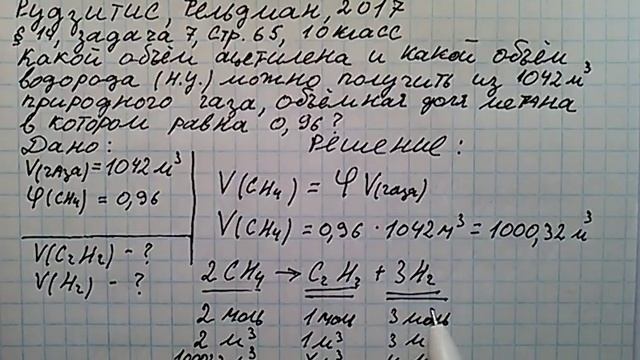 Рудзитис, Фельдман, 2017
§ 19, задача 7, стр. 65, 10 класс
Какой объём ацетилена и какой объём
водорода (н.у.) можно получить из 1042 м³
природного газа, объёмная доля метана
в котором равна 0,96?
Дано: Решение:
V(газа) = 1042 м³
φ(CH₄) = 0,96
V(C₂H₂) - ?
V(H₂) - ?
V(CH₄) = φ V(газа)
V(CH₄) = 0,96 · 1042 м³ = 1000,32 м³
2CH₄ → C₂H₂ + 3H₂
2 моль 1 моль 3 моль
2 м³ 1 м³ 3 м